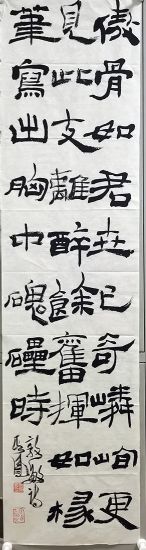 傲骨如君世已奇嶙峋更
見此支離醉餘奮揮如椽
筆寫出胸中磈礧時
敦敏詩